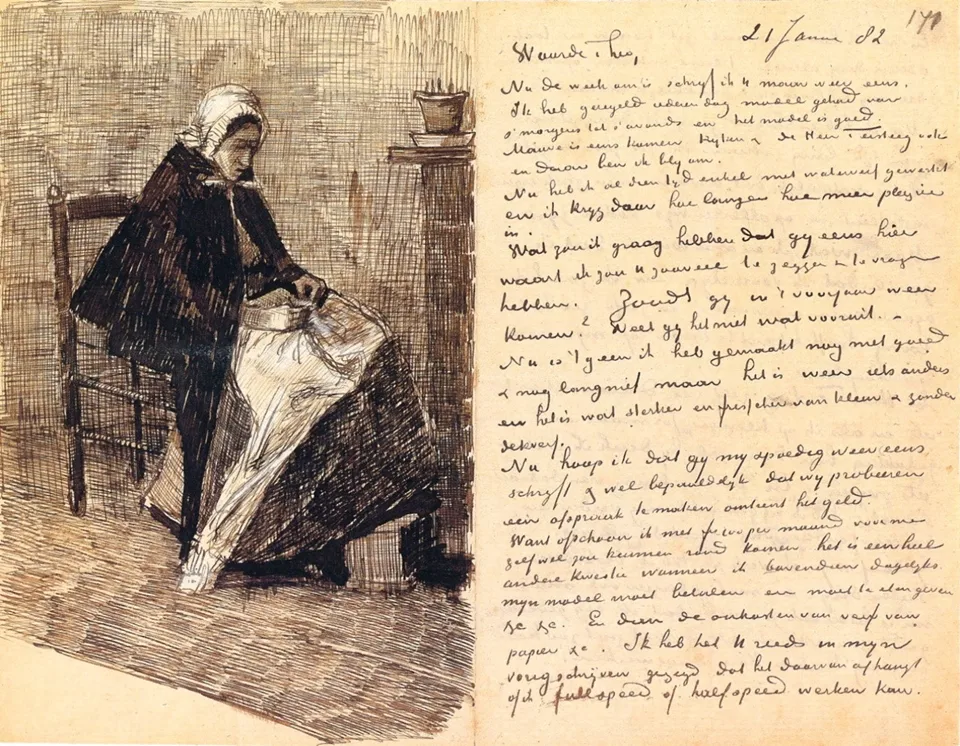 171
21 Januari 82
Waarde Theo,
Nu de week om is schrijf ik U maar weer eens.
Ik heb geregeld iederen dag model gehad van
s'morgens tot s'avonds en het model is goed.
Mauve is eens komen kijken & de Heer Tersteeg ook
en daar ben ik blij om.
Nu heb ik al dien tijd enkel met waterverf gewerkt
en ik krijg daar hoe langer hoe meer plezier
in.
Wat zou ik graag hebben dat gij eens hier
waart ik zou U zooveel te zeggen & te vragen
hebben. Zoudt gij in 't voorjaar weer
komen? Weet gij het niet wat vooruit. –
Nu is 't geen ik heb gemaakt nog niet goed
& nog lang niet maar het is weer iets anders
en het is wat sterker en frisscher van kleur & zonder
dekverf.
Nu hoop ik dat gij mij spoedig weer eens
schrijft & wel bepaaldelijk dat wij probeeren
een afspraak te maken omtrent het geld.
Want ofschoon ik met fr 100 per maand voor me
zelf wel zou kunnen rond komen het is een heel
andere kwestie wanneer ik bovendien dagelijks
mijn model moet betalen en moet te eten geven
&c &c. En dan de onkosten van verf van
papier &c. Ik heb het U reeds in mijn
vorig schrijven gezegd dat het daarvan afhangt
of ik full speed of half speed werken kan.